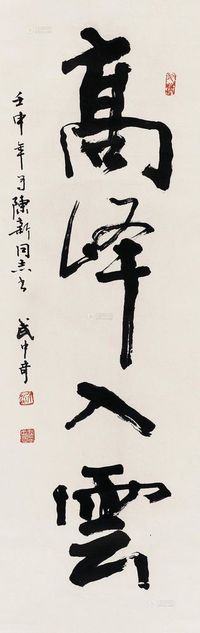 高峰入雲
壬申年 陳新同志 武中奇